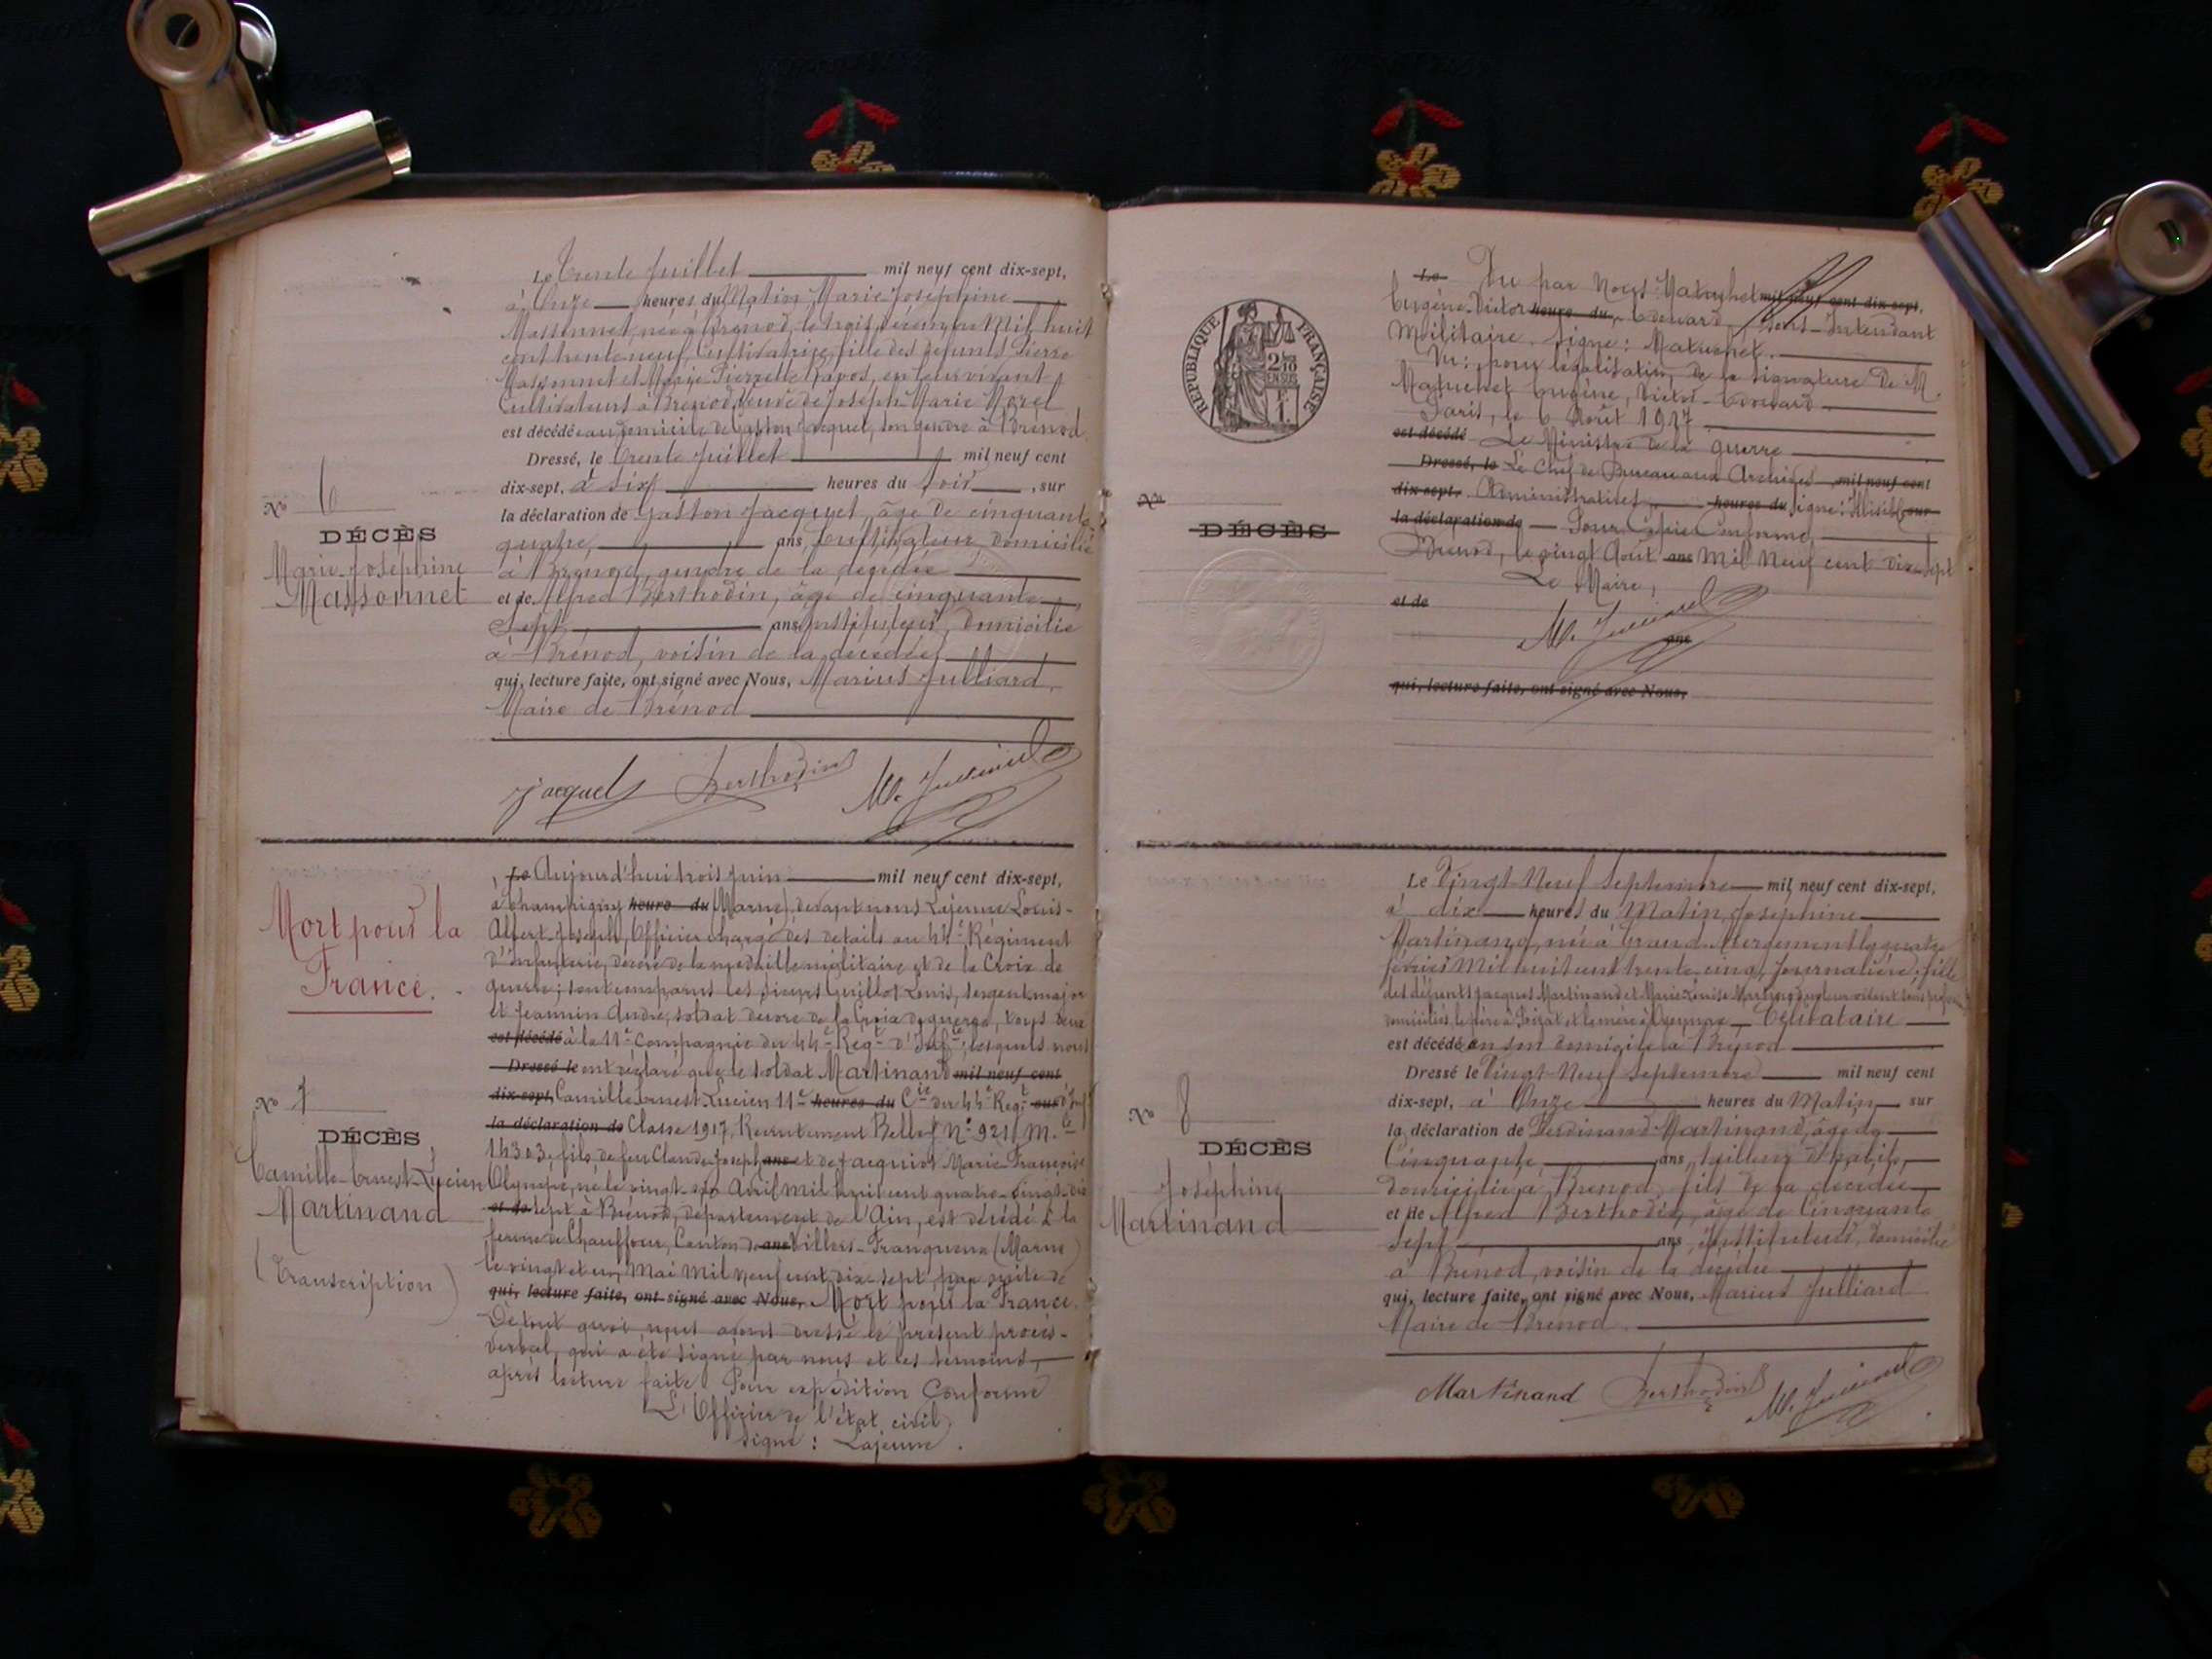 Le Trente Juillet mil neuf cent dix-sept,
à Onze heures du Matin, Marie Joséphine
Massonnet, née à Brénod, le trois décembre Mil huit
cent trente neuf, Cultivatrice, fille des défunts Pierre
Massonnet et Marie Pierrette Ravos, en leur vivant
Cultivateurs à Brénod, veuve de Joseph Marie Morel
est décédée au domicile de Gaston Jacquet, son gendre à Brénod
Dressé, le Trente Juillet mil neuf cent
dix-sept, à Six heures du Soir, sur
la déclaration de Gaston Jacquet, âgé de cinquante
quatre, ans, Cultivateur domicilié
à Brénod, gendre de la décédée
et de Alfred Berthodin, âgé de cinquante
Sept ans, Instituteur, domicilié
à Brénod, voisin de la décédée
qui, lecture faite, ont signé avec Nous, Marius Julliard,
Maire de Brénod
No 6
DÉCÈS
Marie-Joséphine
Massonnet
Jacquet Berthodin M. Julliard
Mort pour la
France.
No 7
DÉCÈS
Camille-Ernest-Lucien
Martinand
(Transcription)
Le Aujourd'hui trois juin mil neuf cent dix-sept,
à Champigny heure du (Marne) devant nous Lajeune Louis-
Albert-Joseph, Officier chargé des détails au 44e Régiment
d'Infanterie, décoré de la médaille militaire et de la Croix de
guerre; sont comparus les sieurs Guillot Louis, sergent major
et Jeannin André, soldat décoré de la Croix de guerre, tous deux
est décédé à la 11e Compagnie du 44e Regt d'Infie, lesquels nous
Dressé le ont déclaré que le soldat Martinand mil neuf cent
dix-sept, Camille Ernest Lucien 11e heures du Cie du 44e Regt sur d'Inf
la déclaration de Classe 1917, Recrutement Belley No 921 M. le
14303, fils de feu Claude Joseph ans et de Jacquiot Marie Françoise
Olympe, né le vingt-six Avril mil huit cent quatre-vingt-dix
et de sept à Brénod, département de l'Ain, est décédé à la
ferme de Chauffour, Canton de ans Villers-Franqueux (Marne)
le vingt et un Mai Mil neuf cent dix sept, par suite de
qui, lecture faite, ont signé avec Nous, Mort pour la France.
De tout quoi nous avons dressé le présent procès-
verbal, qui a été signé par nous et les témoins,
après lecture faite. Pour expédition Conforme
L'Officier de l'état civil
Signé : Lajeune.
RÉPUBLIQUE FRANÇAISE
Le Vu par Nous Matuchet mil neuf cent dix-sept,
Eugène-Victor heure du, Edouard, Sous-Intendant
Militaire. Signé : Matuchet.
Vu : pour légalisation, de la signature De M.
Matuchet Eugène, Victor-Edouard
Paris, le 6 Août 1917
est décédé Le Ministre de la guerre
Dressé, le Le Chef de Bureau aux Archives mil neuf cent
dix-sept, Administratives heures du Signé : Illisible sur
la déclaration de Pour Copie Conforme,
Brénod, le vingt Août ans Mil Neuf cent dix-sept
Le Maire,
et de
M. Julliard
ans
No
DÉCÈS
qui, lecture faite, ont signé avec Nous,
Le Vingt Neuf Septembre mil neuf cent dix-sept,
à dix heures du Matin, Joséphine
Martinand, née à Grand Abergement le quatre
février Mil huit cent trente cinq, Journalière, fille
des défunts Jacques Martinand et Marie Louise
domiciliés, le père à Poizat, et la mère à Oyonnax Célibataire
est décédé en son domicile à Brénod
Dressé le Vingt Neuf Septembre mil neuf cent
dix-sept, à Onze heures du Matin sur
la déclaration de Ferdinand Martinand, âgé de
Cinquante ans, tailleur d'habits,
domicilié à Brénod, fils de la décédée
et de Alfred Berthodin, âgé de Cinquante
Sept ans, instituteur, domicilié
à Brénod, voisin de la décédée
qui, lecture faite, ont signé avec Nous, Marius Julliard
Maire de Brénod.
No 8
DÉCÈS
Joséphine
Martinand
Martinand Berthodin M. Julliard